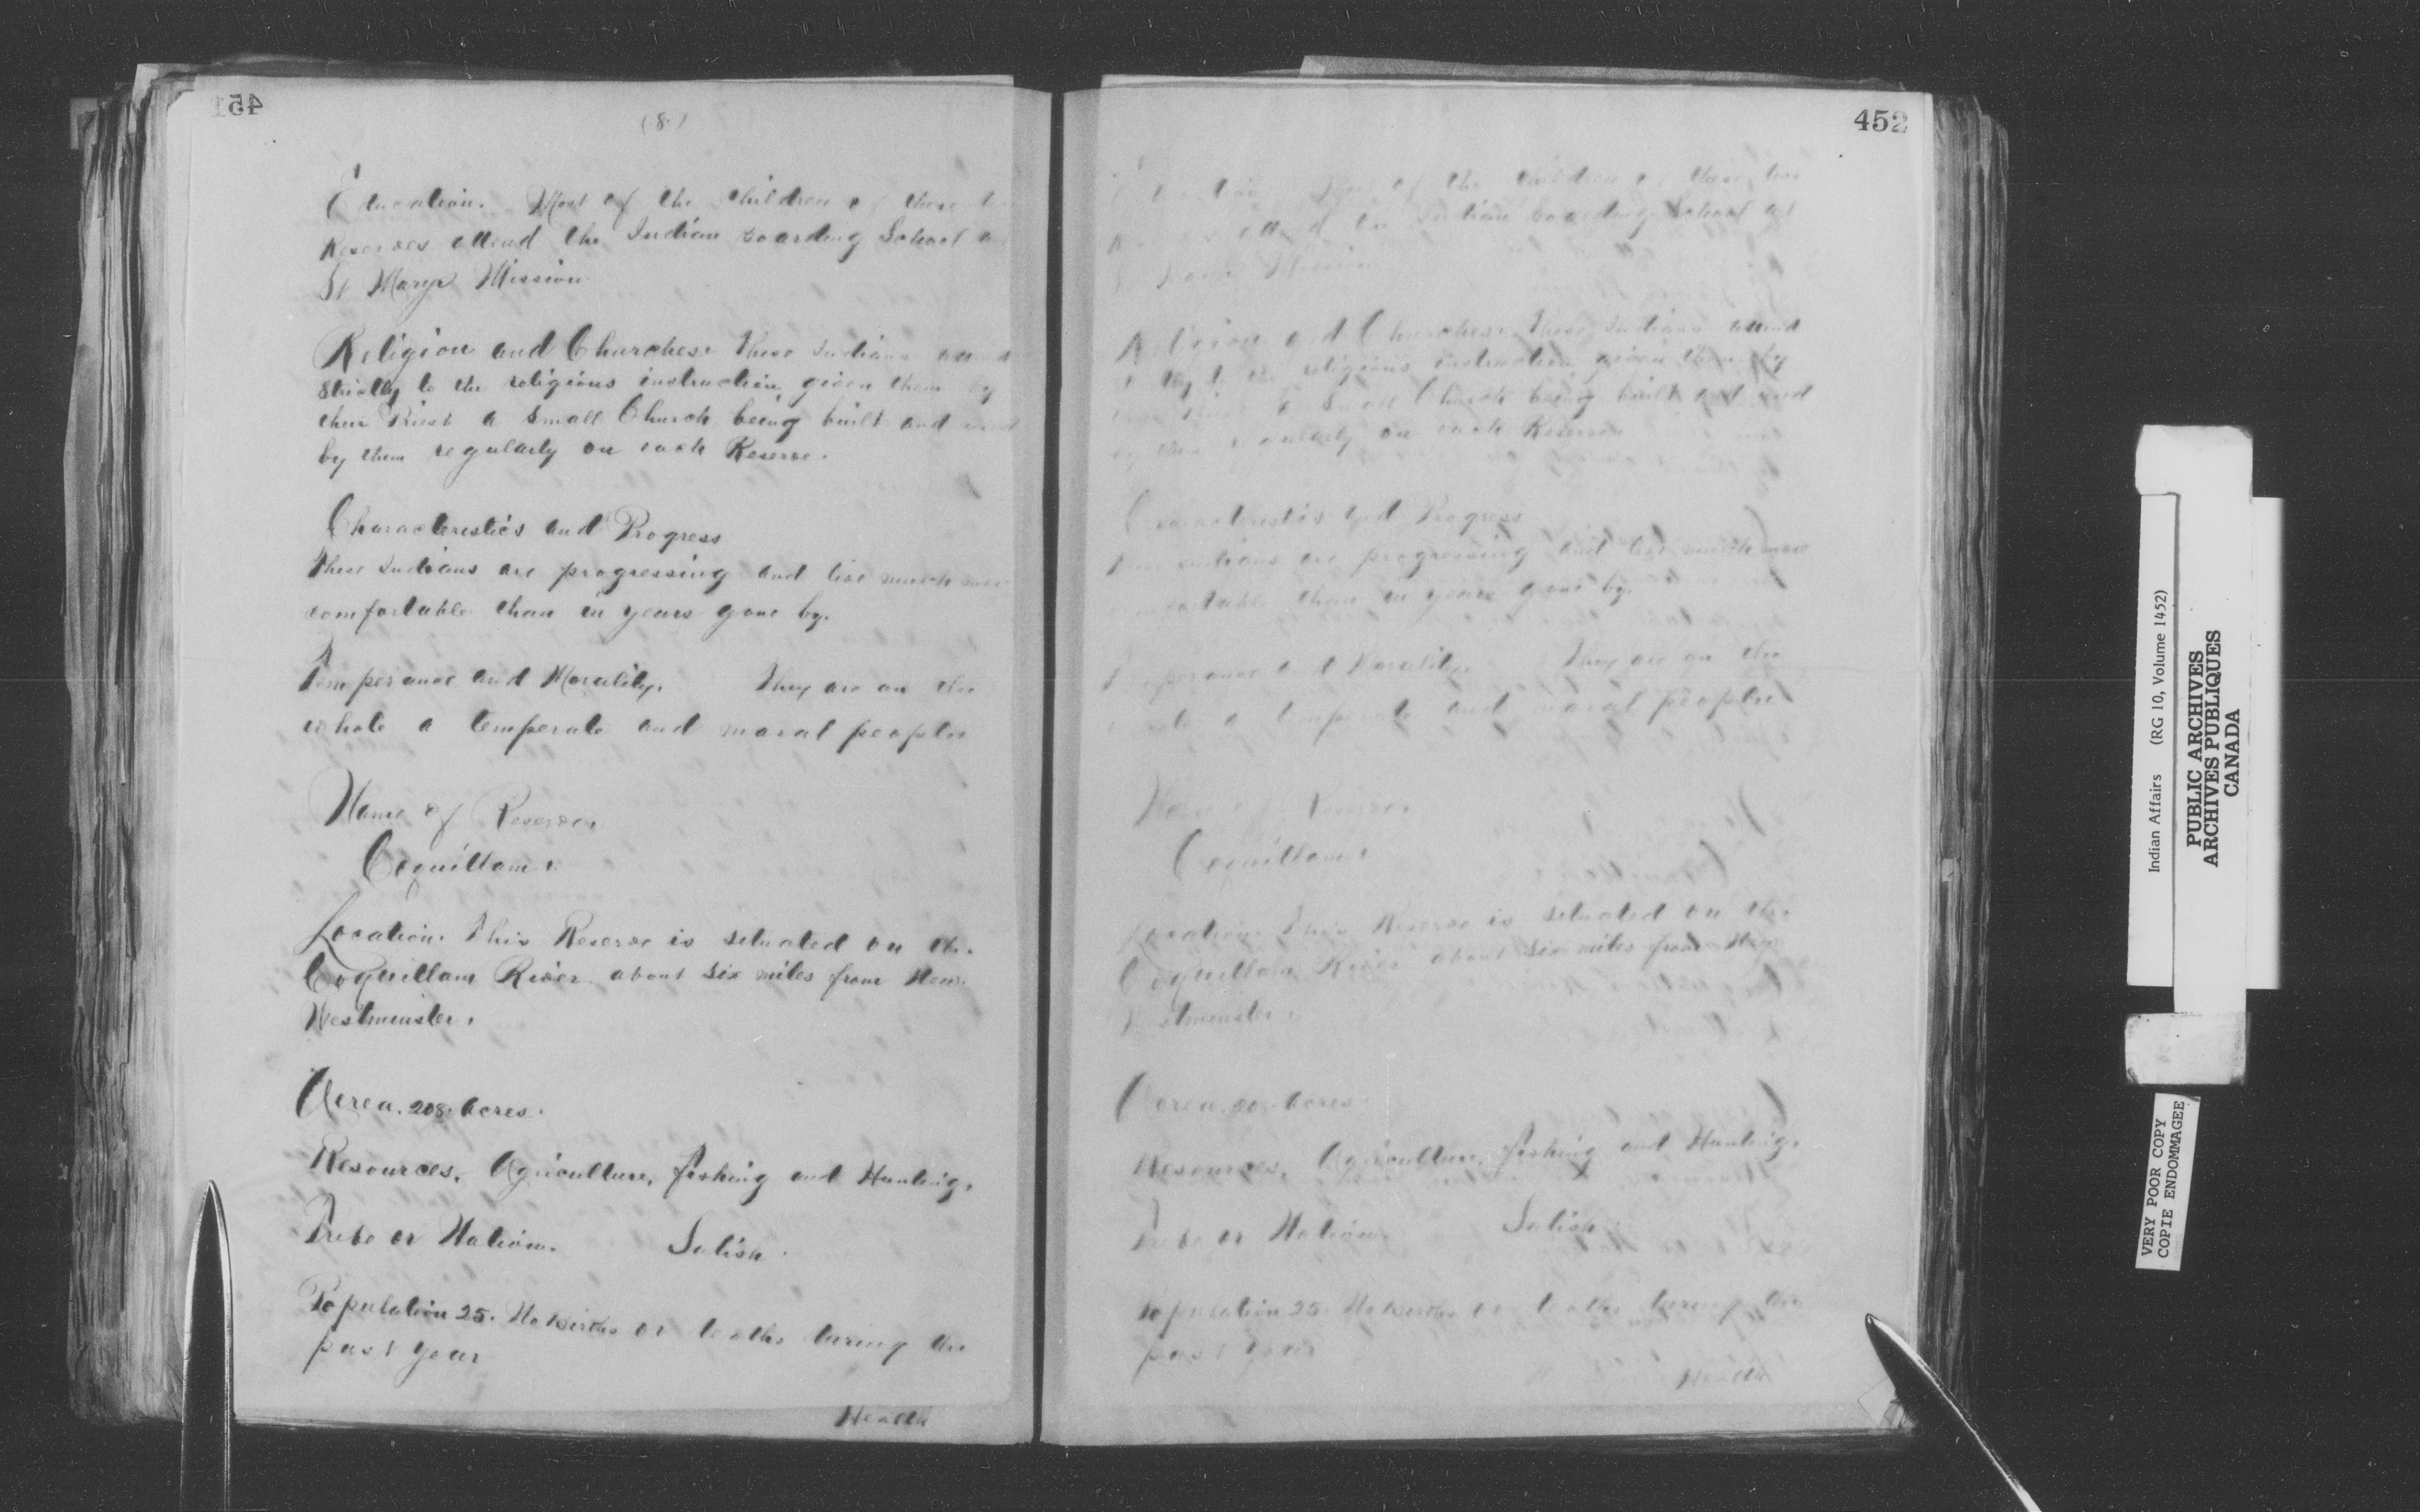 451
(8.)
Education. Most of the children of these two
Reserves attend the Indian Boarding School at
St Marys Mission
Religion and Churches. These Indians attend
strictly to the religious instruction given them by
their Priest a small Church being built and used
by them regularly on each Reserve.
Characteristics and Progress
These Indians are progressing and live much more
comfortable than in years gone by.
Temperance and Morality. They are on the
whole a temperate and moral people
Name of Reserve.
Coquillam.
Location. This Reserve is situated on the
Coquillam River about six miles from New
Westminster.
Aerea. 208. Acres.
Resources. Agriculture, fishing and Hunting.
Tribe or Nation. Salish.
Population 25. No births or deaths during the
past year
Health
452
Education Most of the children of these two
attend the Indian Boarding School at
Mission
Religion and Churches. These Indians attend
to the religious instruction given them by
a small Church being built and used
by them regularly on each Reserve
Characteristics and Progress
Indians are progressing and live much more
than in years gone by.
Temperance and Morality. They are on the
a temperate and moral people
Name of Reserve.
Coquillam.
Location. This Reserve is situated on the
Coquillam River about six miles from New
Westminster.
Aerea. 208. Acres.
Resources. Agriculture, fishing and Hunting.
Tribe or Nation. Salish.
Population 25. No births or deaths during the
past year
Health
Indian Affairs (RG 10, Volume 1452)
PUBLIC ARCHIVES
ARCHIVES PUBLIQUES
CANADA
VERY POOR COPY
COPIE ENDOMMAGEE